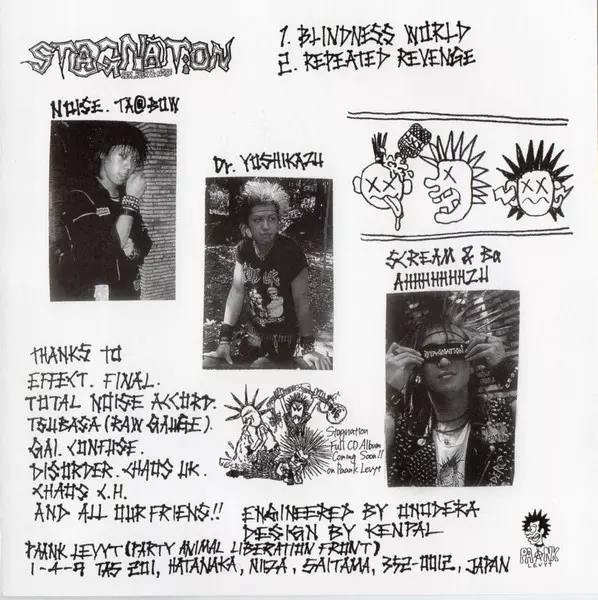 STAGNATION
1. BLINDNESS WORLD
2. REPEATED REVENGE
NOISE. TA@BOW
Dr. YOSHIKAZU
SCREAM & Ba
AHHHHHHHZU
STAGNATION
THANKS TO
EFFECT. FINAL.
TOTAL NOISE ACCORD.
TSUBASA (RAW GAUGE).
GAI. CONFUSE.
DISORDER. CHAOS UK.
CHAOS C.H.
AND ALL OUR FRIENS!!
Stagnation
Full CD Album
Coming Soon!!
on Paank Levyt
ENGINEERED BY ONODERA
DESIGN BY KENPAL
PAANK LEVYT (PARTY ANIMAL LIBERATION FRONT)
1-4-9 TAS 201, HATANAKA, NIZA, SAITAMA, 352-0012, JAPAN
PAANK
LEVYT